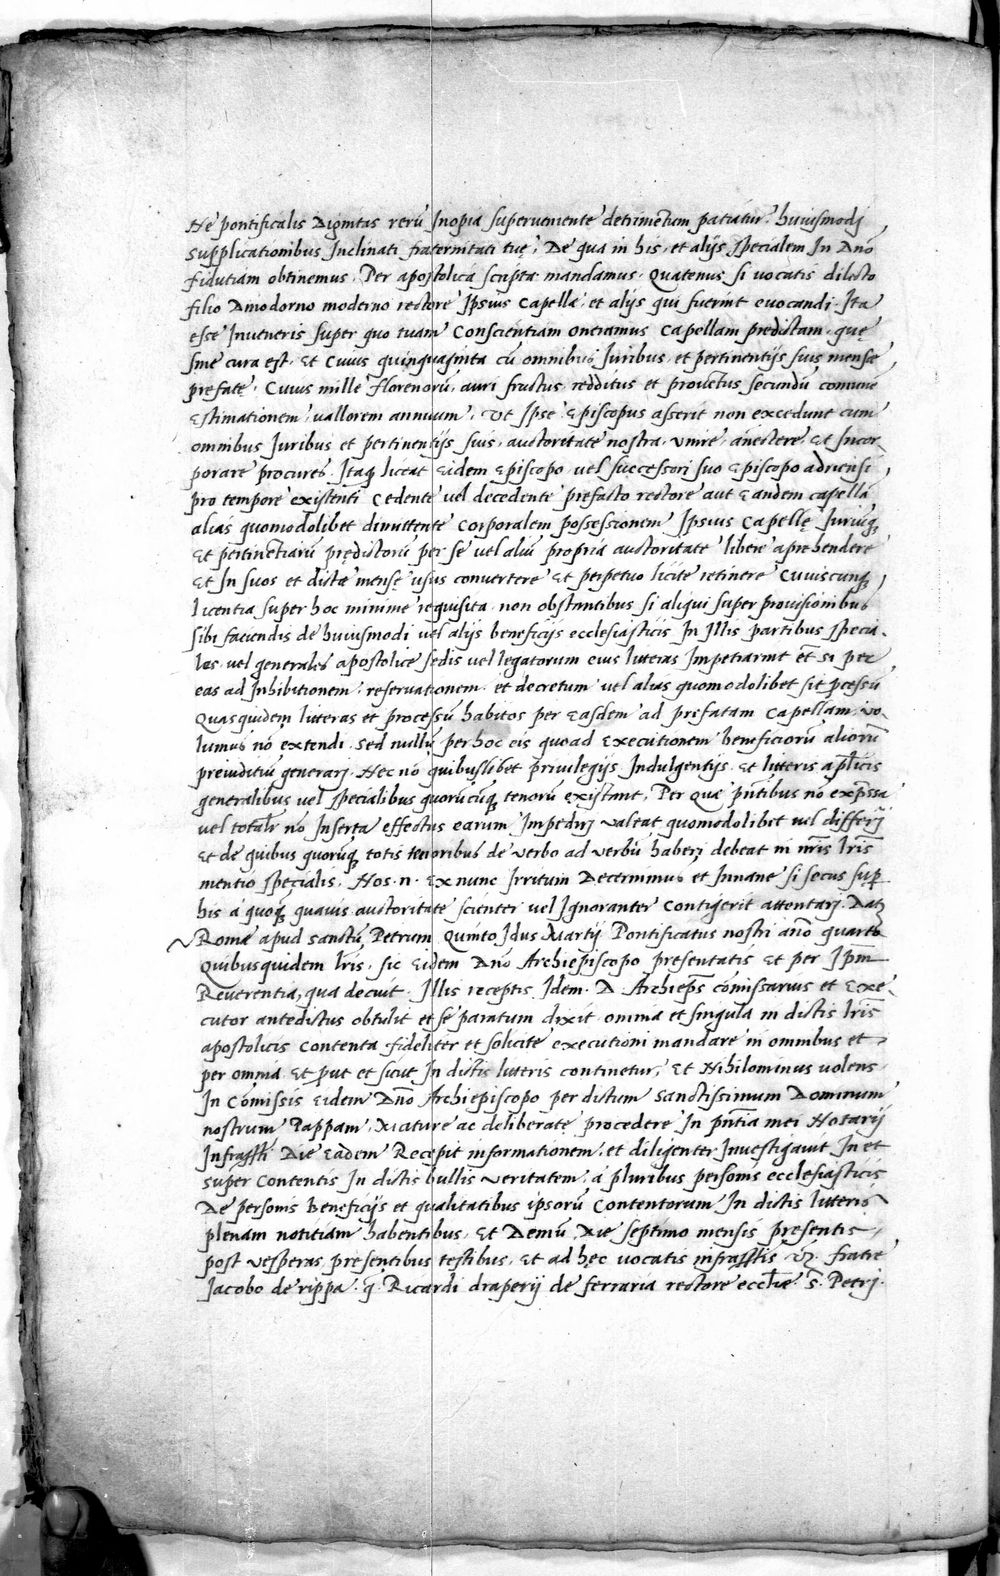 Ne pontificalis Dignitas rerū Inopia superveniente detrimentum patiatur. huiusmodj
supplicationibus Inclinati fraternitati tuę, De qua in his, et alijs specialem In Dño
fidutiam obtinemus, Per apostolica scripta mandamus. Quatenus si vocatis dilecto
filio Amodorno moderno rectore Ipsius Capellæ, et alijs qui fuerint evocandi. Ita
esse Inveneris super quo tuam Conscientiam oneramus Capellam predictam, quę
sine cura est, et Cuius quinquaginta cū omnibus Juribus, et pertinentijs suis mensę
prefatę. Cuius mille florenorū, auri fructus, redditus et proventus secundū comune
Estimationem, vallorem annuum, Ut Ipse Episcopus asserit non excedunt cum
omnibus Juribus et pertinentijs suis, auctoritate nostra, unire, anectere, et Incor
porare procures. Itaq, liceat Eidem Episcopo, vel successori suo Episcopo adriensi
pro tempore existenti Cedente vel decedente prefacto rectore aut Eandem capellā
alias quomodolibet dimittente Corporalem possessionem Ipsius Capellę Juriuq,
Et pertinētiarū prędictorū per se vel aliū propria auctoritate libere aprehendere
Et In suos et dictæ mensę usus convertere et perpetuo licite retinere Cuiuscunq,
licentia super hoc minime requisita. non obstantibus si aliqui super provisionibus
sibi faciendis de huiusmodi vel alijs beneficijs ecclesiasticis In Illis partibus specia
les vel generales apostolice sedis vel legatorum eius litteras Impetrarint et si per
eas ad Inhibitionem, reservationem, et decretum vel alias quomodolibet sit pcessū
Quasquidem litteras et processū habitos per Easdem ad prefatam Capellam, vo
lumus nō extendi. sed nullū per hoc eis quoad executionem beneficiorū aliorū
preiuditiū generarj. Nec nō quibuslibet privilegijs Indulgentijs et litteris aplicis
generalibus vel specialibus quorūcūq, tenorū existant, Per Quæ pñtibus nō expressa
vel totalr nō Inserta effectus earum Impedirj valeat quomodolibet vel differrj
Et de quibus quorūq, totis tenoribus de verbo ad verbū haberj debeat in nris lris
mentio specialis, Nos .n. Ex nunc Irritum Decernimus et Innane si secus sup
his a quoq, quavis auctoritate scienter vel Ignoranter Contigerit attentarj. Dat
Romæ apud sanctū Petrum Quinto Idus Martij Pontificatus nostri año quarto
Quibusquidem lris, sic Eidem Dño Archiepiscopo presentatis et per Ipm
Reverentia, qua decuit. Illis receptis Idem. D. Archieps comissarius et Exe
cutor antedictus obtulit et se paratum dixit omnia et singula in dictis lris
apostolicis Contenta fideliter et solicite executioni mandare in omnibus et
per omnia, Et put et sicut In dictis litteris continetur, Et Nihilominus volens
In Comissis Eidem Dño Archiepiscopo per dictum Sanctissimum Dominum
nostrum Pappam, Mature ac deliberate procedere In pñtia mei Notarij
Infrascti Die Eadem Recepit informationem, et diligenter Investigavit In et
super Contentis In dictis bullis veritatem, a pluribus personis ecclesiasticis
De personis Beneficijs et qualitatibus ipsorū Contentorum In dictis litteris
plenam notitiam habentibus, Et Demū Die septimo mensis presentis
post vesperas, presentibus testibus, Et ad hec vocatis infrasctis vz. fratre
Jacobo de rippa. q. Ricardi draperij de ferraria rectore ecclīæ S. Petrj.